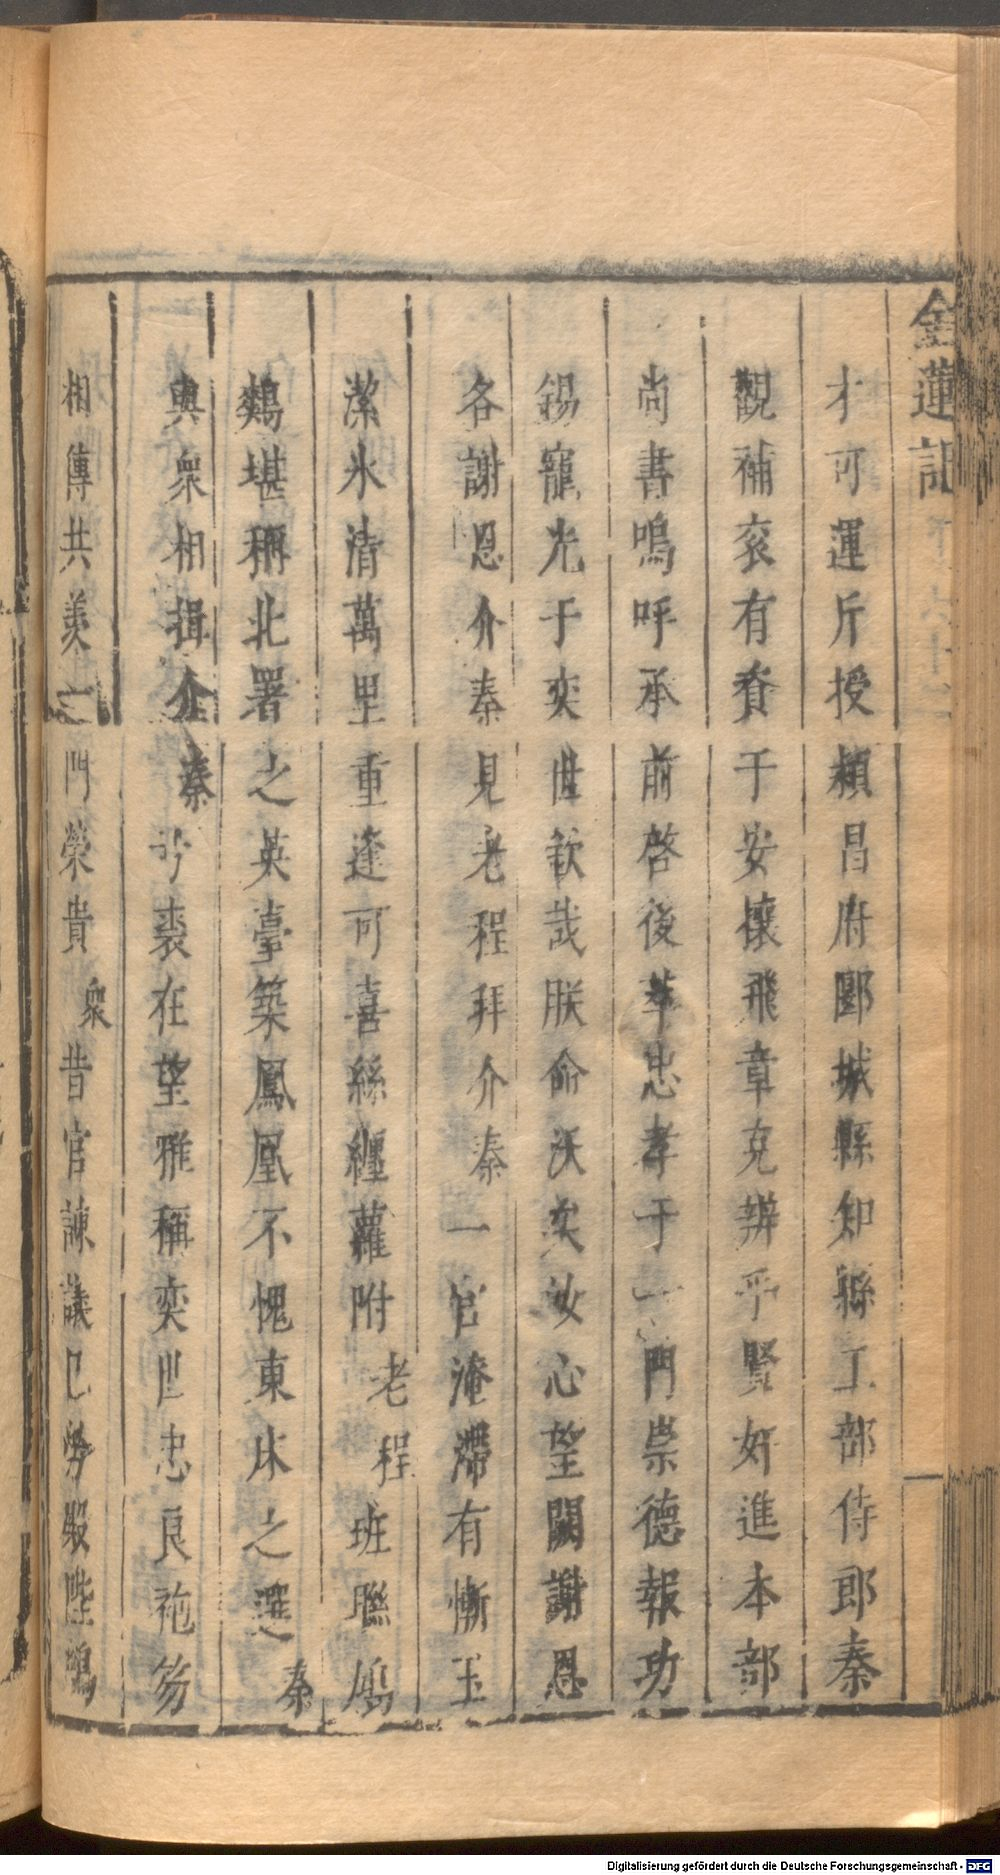 金蓮記
才可運斤授穎昌府郾城縣知縣工部侍郎秦
觀補衮有資于安攘飛章克辦乎賢奸進本部
尚書嗚呼承前啓後萃忠孝于一門崇德報功
錫寵光于奕世欽哉朕命沃矣汝心望闕謝恩
各謝恩介秦見老程拜介秦一官淹滯有慚玉
潔氷清萬里重逢可喜絲纏蘿附老程班聯鵷
鷄堪稱北署之英臺築鳳凰不愧東床之選秦
與衆相揖介秦兮裘在望雅稱奕世忠良袍笏
相傳共羨一門榮貴衆昔官諫議已勞殿陛鳴
Digitalisierung gefördert durch die Deutsche Forschungsgemeinschaft - DFG